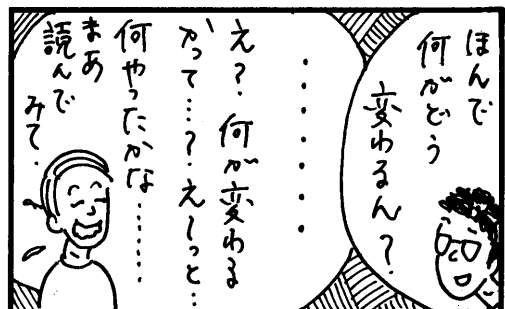 ほんで
何がどう
変わるん?
・・・・・・
え?何が変わる
がって…?え〜っと…
何やったかな………
まあ
読んで
みて.